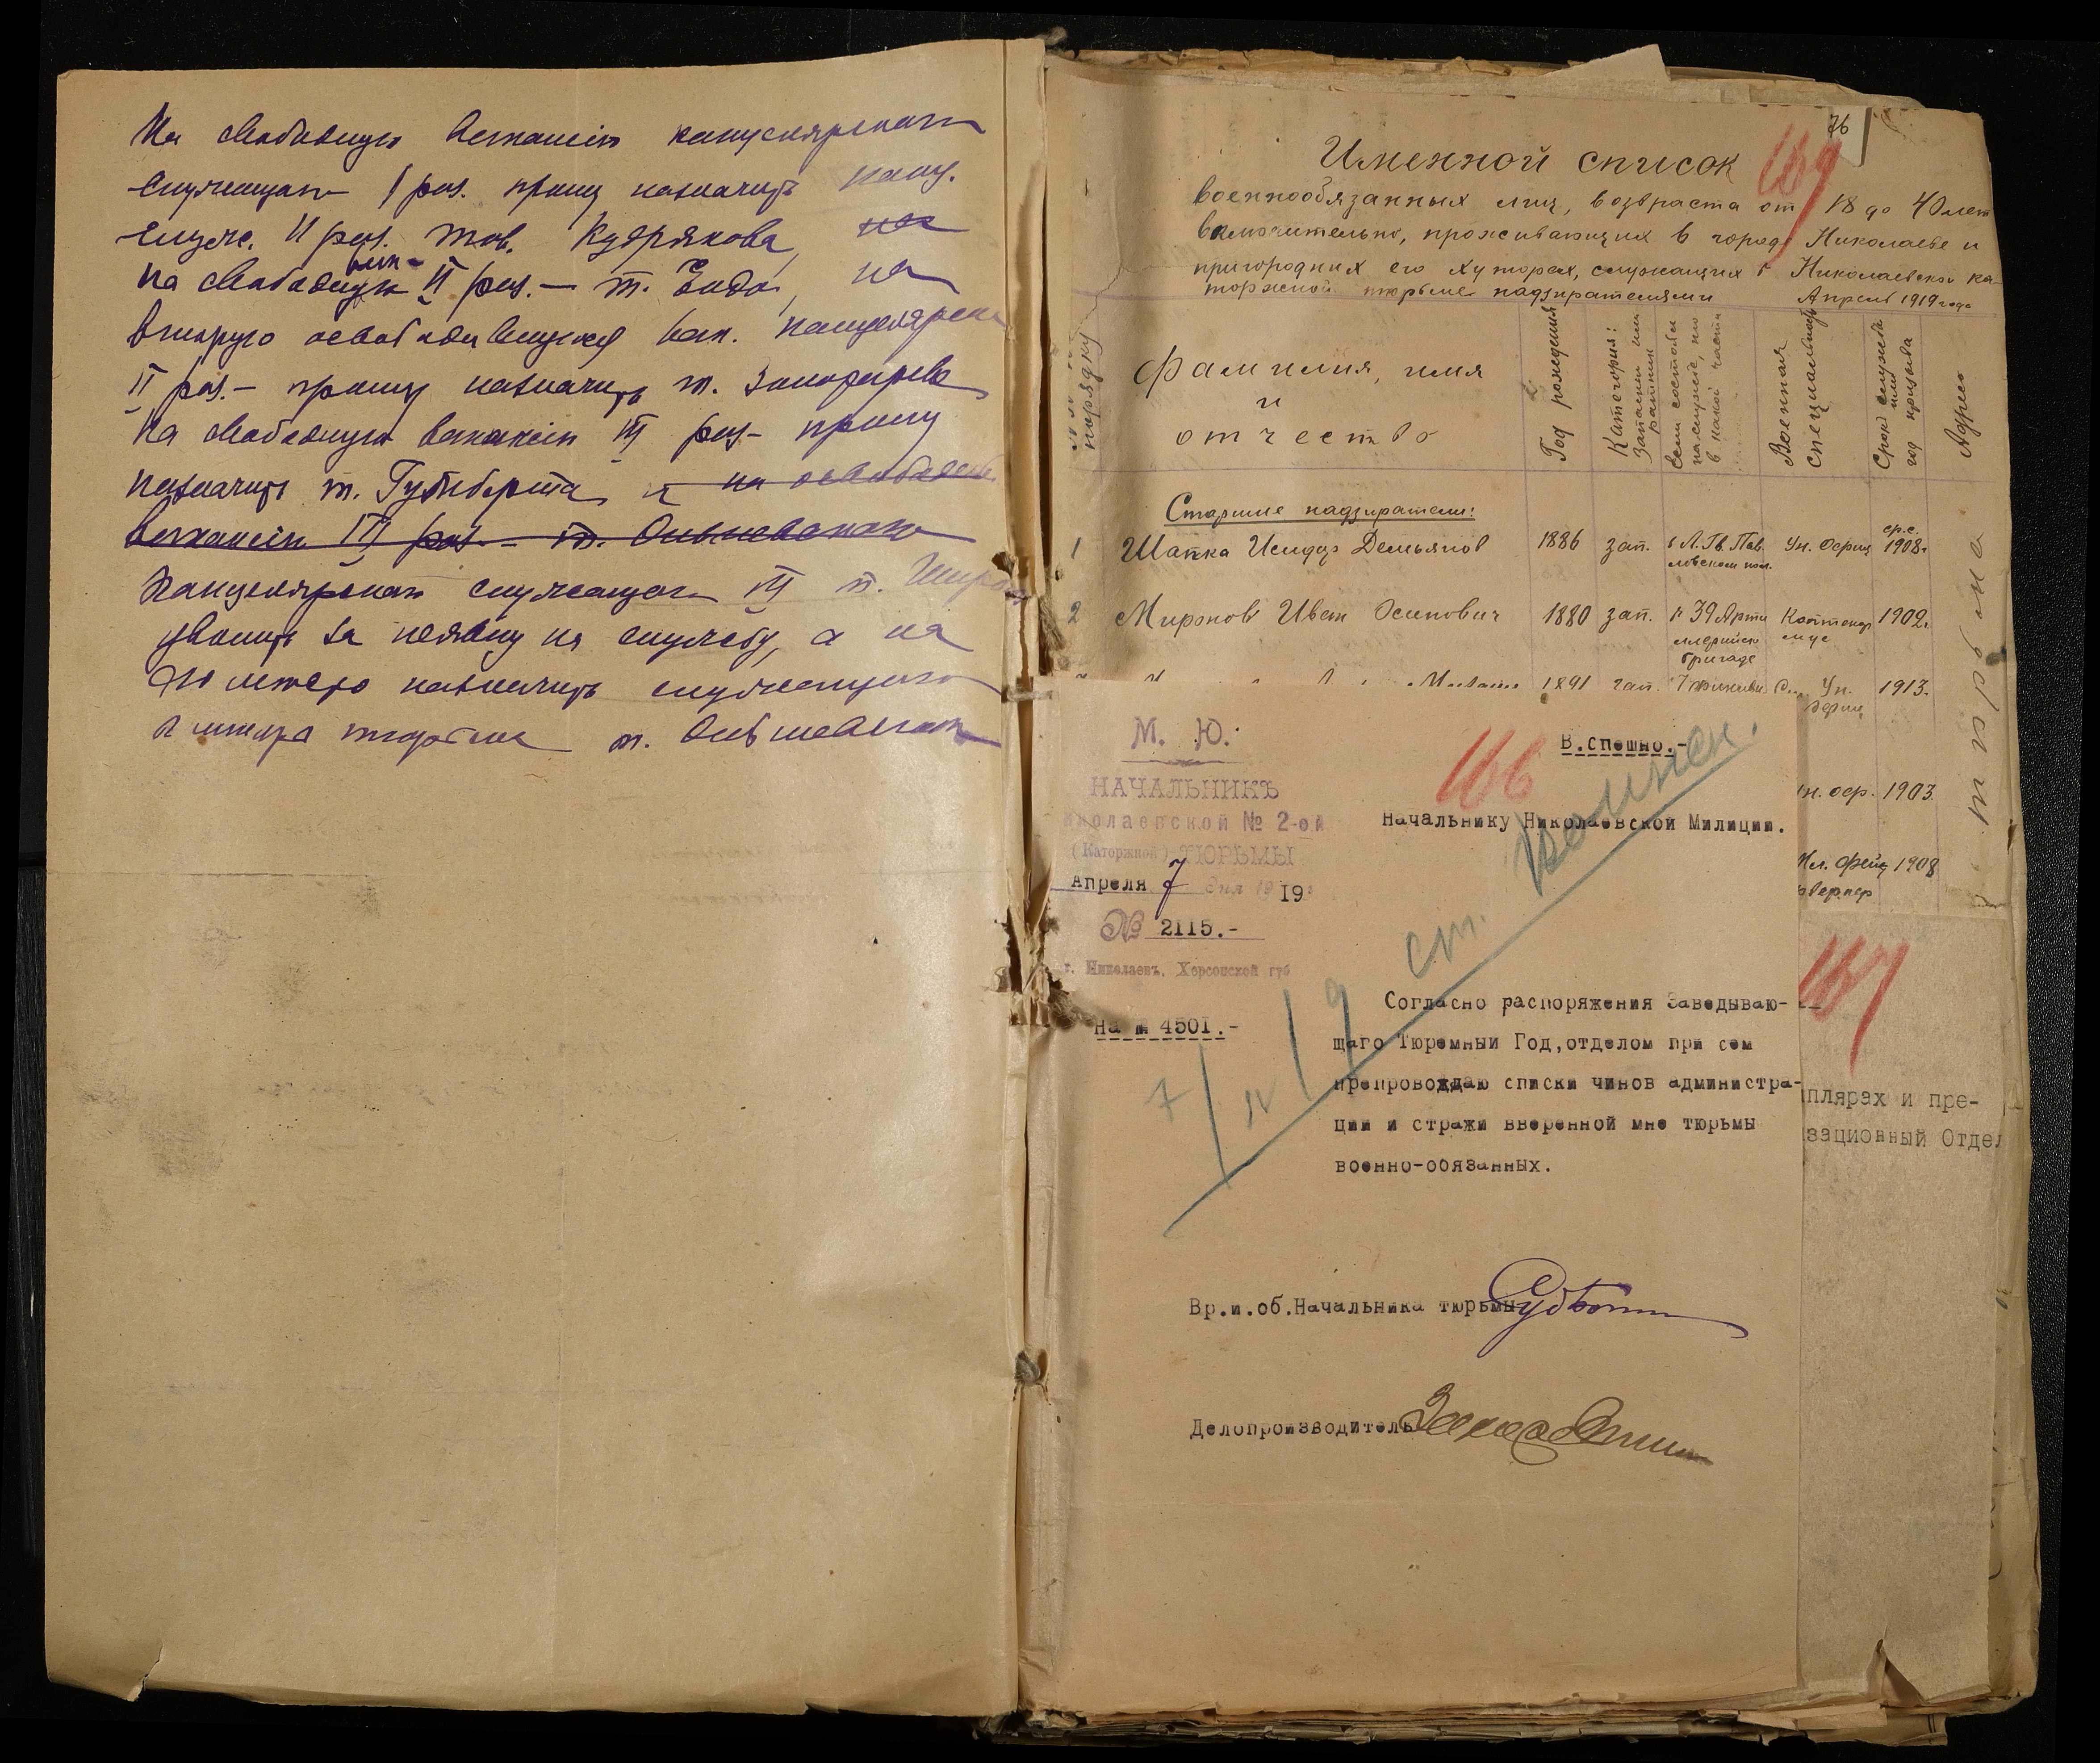 На свободную вакансию канцелярскаго
служащаго I раз. прошу назначить канц.
служ. II раз. тов. Кудрякова, на
на свободную вак. II раз. — т. Ендо, на
вторую освободившуюся вак. канцелярска
II раз. — прошу назначить т.
На свободную вакансию III раз. прошу
назначить т. Гутберта, и на освобод
вакансию III раз. — т. Ольшевскаго
Канцелярскаго служащаго III т.
уволить за неявку на службу, а на
его место назначить служащаго
т. Ольшевскаго
76
Именной список 169
военнообязанных лиц, возраста от 18 до 40 лет
включительно, проживающих в городе Николаеве и
пригородных его хуторах, служащих в Николаевской ка-
торжной тюрьме надзирателями Апрель 1919 года
порядку
Фамилия, имя
и
отчество
Год рождения
Категория:
запасный или
ратник
если состоял
на службе, то
в какой части
Военная
специальность
Срок службы
или
год призыва
Адрес
Старшие надзиратели:
1 Шапка Исидор Демьянов 1886 зап. в Л. Гв. Пав- Ун. Офриц ср.с. 1908 г.
ловском пол.
2 Миронов Иван Осипович 1880 зап. в 39 Арти Каптенар 1902 г.
ллерийск мус
бригаде
1891 зап. 7 Ун. 1913.
офриц
Ун. офр. 1903.
Мл. фейер 1908
веркер
Тюрьма
М. Ю.
НАЧАЛЬНИКЪ
иколаевской № 2-ой
(Каторжной) ТЮРЬМЫ
Апреля 7 дня 19 19
№ 2115.-
г. Николаевъ, Херсонской губ
На № 4501.-
166
В.спешно.-
Начальнику Николаевской Милиции.
7/IV 19 ст.
Согласно распоряжения Заведываю-
щаго Тюремный Год,отделом при сем
препровождаю списки чинов администра-
ции и стражи вверенной мне тюрьмы
военно-обязанных.
Вр.и.об.Начальника тюрьмы
Делопроизводитель
167
плярах и пре-
зационный Отдел